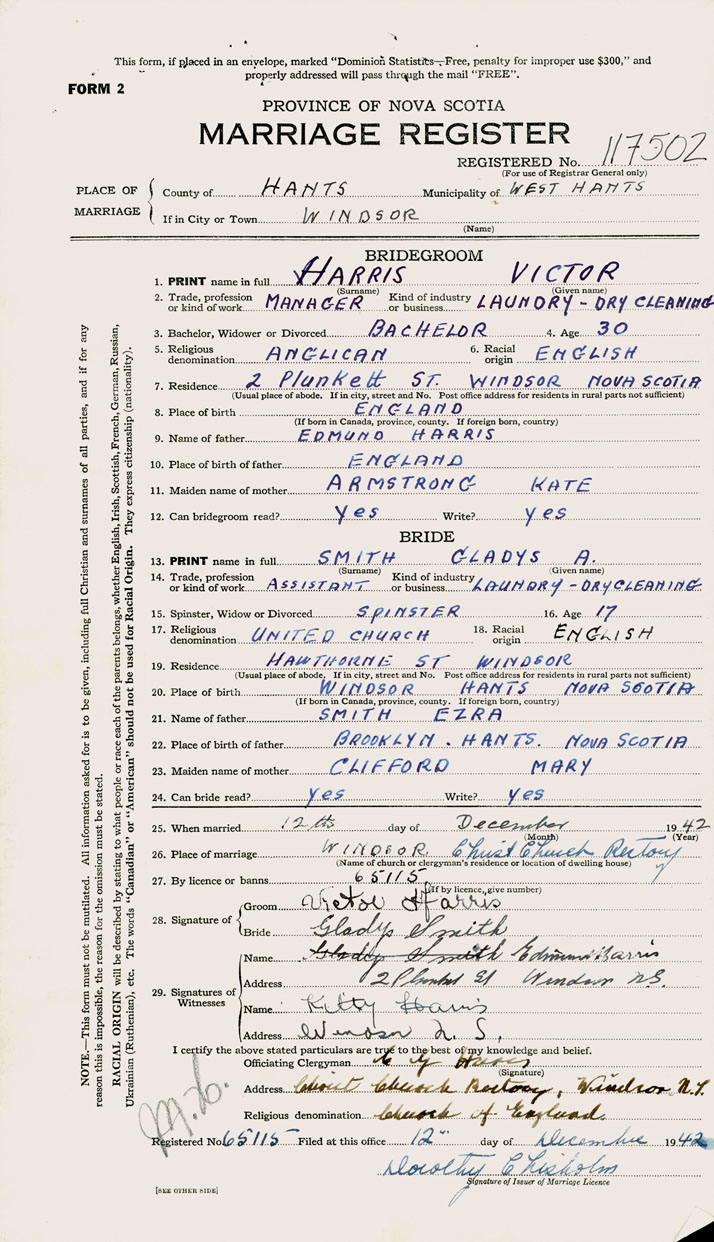 This form, if placed in an envelope, marked "Dominion Statistics—Free, penalty for improper use $300," and
properly addressed will pass through the mail "FREE".
FORM 2
PROVINCE OF NOVA SCOTIA
MARRIAGE REGISTER
REGISTERED No. 117502
(For use of Registrar General only)
PLACE OF MARRIAGE
County of HANTS Municipality of WEST HANTS
If in City or Town WINDSOR
(Name)
BRIDEGROOM
1. PRINT name in full HARRIS VICTOR
(Surname) (Given name)
2. Trade, profession or kind of work MANAGER Kind of industry or business LAUNDRY - DRY CLEANING
3. Bachelor, Widower or Divorced BACHELOR 4. Age 30
5. Religious denomination ANGLICAN 6. Racial origin ENGLISH
7. Residence 2 Plunkett ST. WINDSOR NOVA SCOTIA
(Usual place of abode. If in city, street and No. Post office address for residents in rural parts not sufficient)
8. Place of birth ENGLAND
(If born in Canada, province, county. If foreign born, country)
9. Name of father EDMUND HARRIS
10. Place of birth of father ENGLAND
11. Maiden name of mother ARMSTRONG KATE
12. Can bridegroom read? yes Write? yes
BRIDE
13. PRINT name in full SMITH GLADYS A.
(Surname) (Given name)
14. Trade, profession or kind of work ASSISTANT Kind of industry or business LAUNDRY - DRYCLEANING
15. Spinster, Widow or Divorced SPINSTER 16. Age 17
17. Religious denomination UNITED CHURCH 18. Racial origin ENGLISH
19. Residence HAWTHORNE ST WINDSOR
(Usual place of abode. If in city, street and No. Post office address for residents in rural parts not sufficient)
20. Place of birth WINDSOR HANTS NOVA SCOTIA
(If born in Canada, province, county. If foreign born, country)
21. Name of father SMITH EZRA
22. Place of birth of father BROOKLYN. HANTS. NOVA SCOTIA
23. Maiden name of mother CLIFFORD MARY
24. Can bride read? yes Write? yes
25. When married 12th day of December 1942
(Month) (Year)
26. Place of marriage WINDSOR. Christ Church Rectory
(Name of church or clergyman's residence or location of dwelling house)
27. By licence or banns 65115
(If by licence, give number)
28. Signature of
Groom Victor Harris
Bride Gladys Smith
29. Signatures of Witnesses
Name Gladys Smith Edmund Harris
Address 2 Plunket St Windsor N.S.
Name Kitty Harris
Address Windsor N. S.
I certify the above stated particulars are true to the best of my knowledge and belief.
Officiating Clergyman
(Signature)
Address Christ Church Rectory, Windsor N.S.
Religious denomination Church of England.
Registered No. 65115 Filed at this office 12" day of Decembre 1942
Dorothy Chisholm
Signature of Issuer of Marriage Licence
[SEE OTHER SIDE]
NOTE.—This form must not be mutilated. All information asked for is to be given, including full Christian and surnames of all parties, and if for any
reason this is impossible, the reason for the omission must be stated.
RACIAL ORIGIN will be described by stating to what people or race each of the parents belongs, whether English, Irish, Scottish, French, German, Russian,
Ukrainian (Ruthenian), etc. The words "Canadian" or "American" should not be used for Racial Origin. They express citizenship (nationality).